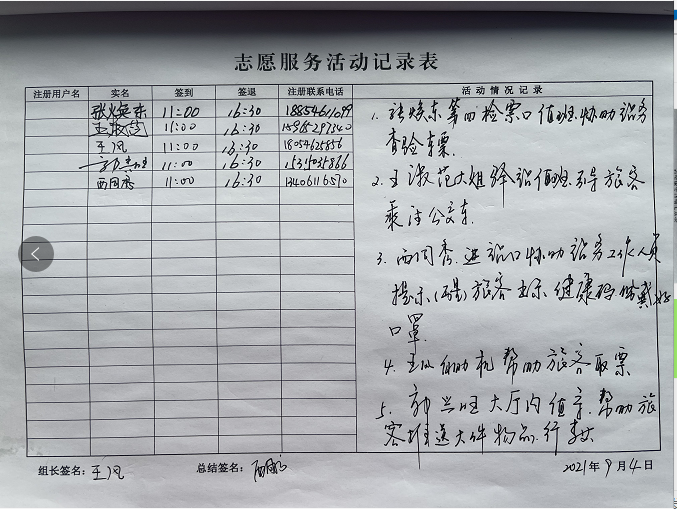 志愿服务活动记录表
注册用户名 实名 签到 签退 注册联系电话 活动情况记录
张焕东 11:00 16:30 18854611099
王淑范 11:00 16:30
王凤 11:00 16:30 18054625856
11:00 16:30
西同秀 11:00 16:30 13406116570
1. 张焕东第四检票口值班.协助站务
查验车票.
2. 王淑范大姐 值班.引导旅客
乘注公交车.
3. 西同秀.进站口协助站务工作人员
提示(醒)旅客出示健康码 戴好
口罩.
4. 王凤自助机帮助旅客取票
5. 郭兰旺大厅内值守.帮助旅
客 送大件物品.行李
组长签名: 王凤 总结签名:
2021年9月4日